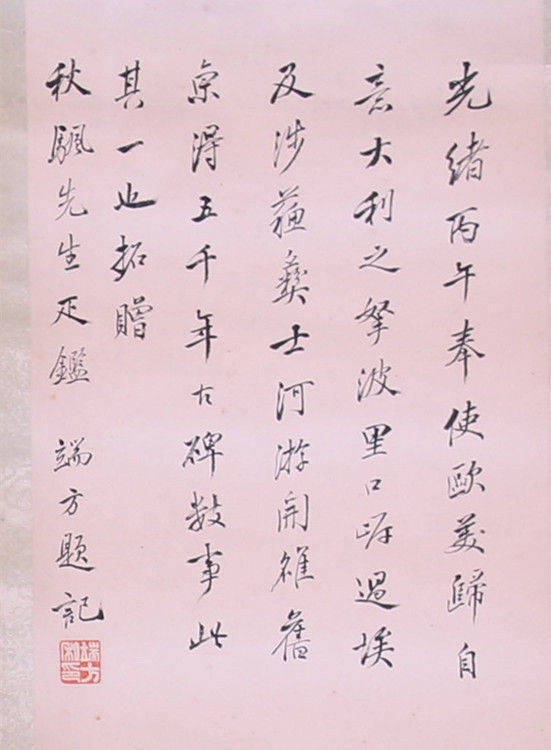 光緒丙午奉使歐美歸自
意大利之拏波里口岸過埃
及涉蘓彝士河游開雒舊
京得五千年古碑数事此
其一也拓贈
秋颿先生疋鑑 端方題記
端方